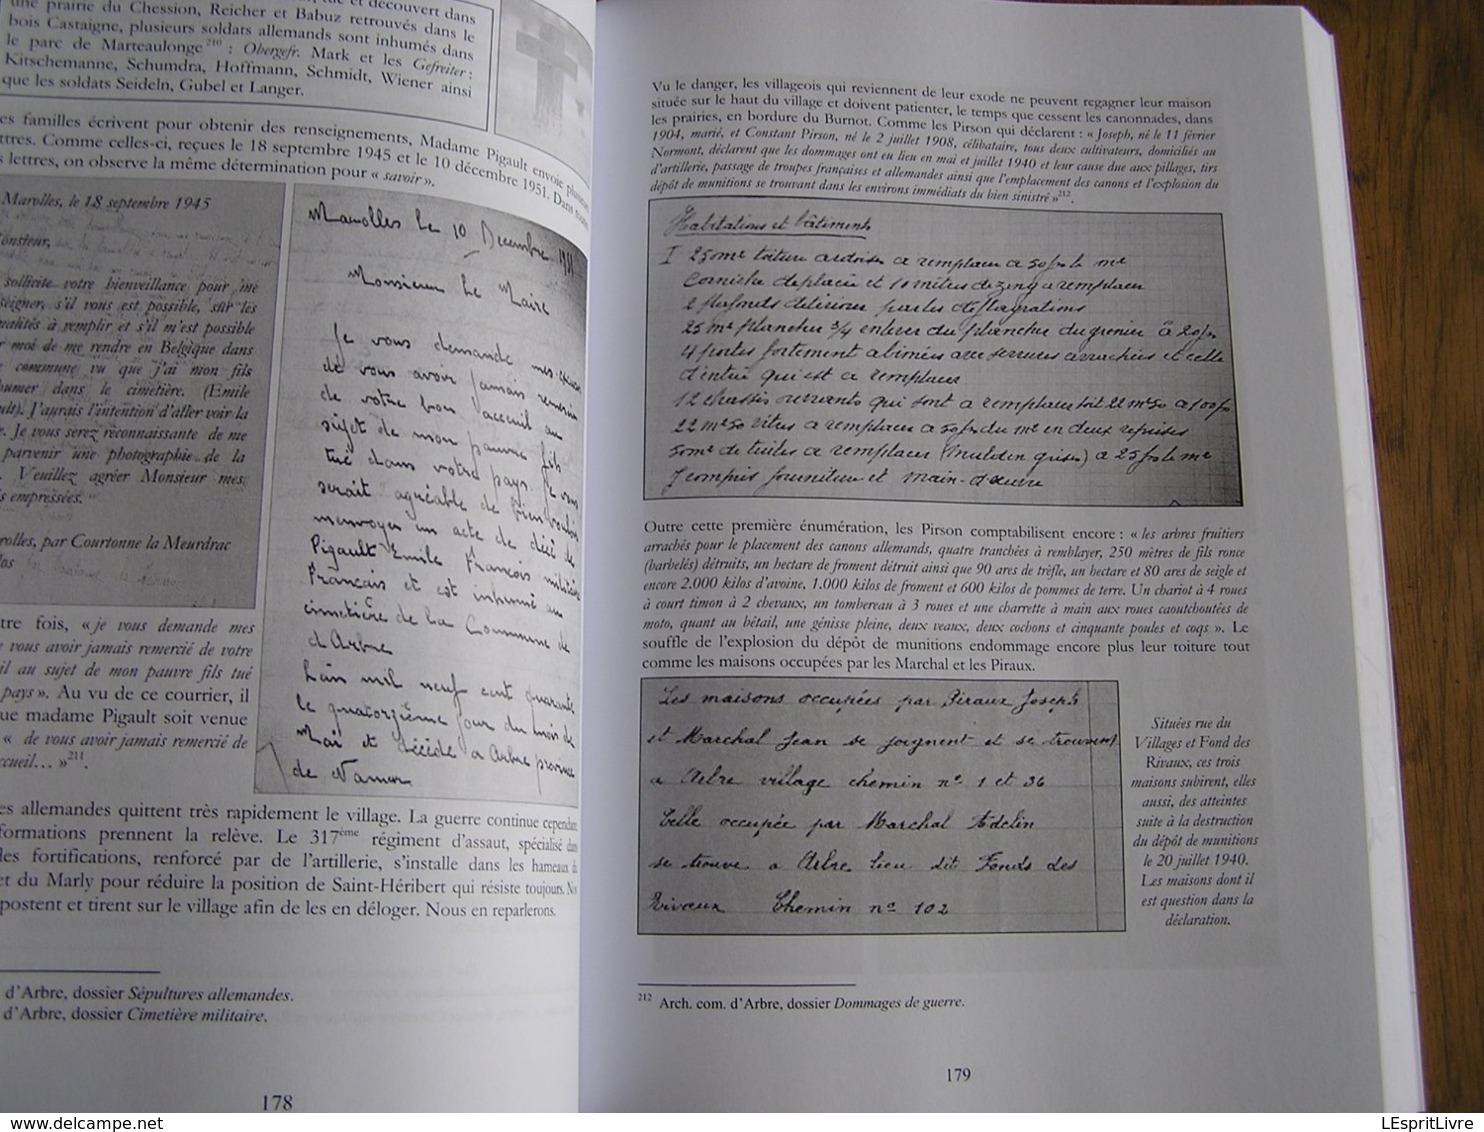 une prairie du Chession, Reicher et Babuz retrouvés dans le
bois Castaigne, plusieurs soldats allemands sont inhumés dans
le parc de Marteaulonge 210 : Obergefr. Mark et les Gefreiter :
Kitschemanne, Schumdra, Hoffmann, Schmidt, Wiener ainsi
que les soldats Seideln, Gubel et Langer.
es familles écrivent pour obtenir des renseignements, Madame Pigault envoie
ttres. Comme celles-ci, reçues le 18 septembre 1945 et le 10 décembre 1951. Dans
s lettres, on observe la même détermination pour « savoir ».
Marolles, le 18 septembre 1945
onsieur,
sollicite votre bienveillance pour me
seigner, s'il vous est possible, sur les
malités à remplir et s'il m'est possible
r moi de me rendre en Belgique dans
commune vu que j'ai mon fils
humer dans le cimetière. (Emile
ult). J'aurais l'intention d'aller voir la
. Je vous serez reconnaissante de me
parvenir une photographie de la
. Veuillez agréer Monsieur mes
s empressées."
rolles, par Courtonne la Meurdrac
los
Marolles le 10 Decembre 1951
Monsieur Le Maire
Je vous demande mes excuses
de vous avoir jamais remercier
de votre bon acceuil au
sujet de mon pauvre fils
tué dans votre pays. Je vous
serait agréable de bien vouloir
m'envoyer un acte de décè de
Pigault Emile François militaire
Français et est inhumé au
cimetière de la Commune de
d'Arbre
L'an mil neuf cent quarante
le quatorzième jour du mois de
Mai et décédé a Arbre province
de Namur
tre fois, « je vous demande mes
vous avoir jamais remercié de votre
il au sujet de mon pauvre fils tué
pays ». Au vu de ce courrier, il
ue madame Pigault soit venue
« de vous avoir jamais remercié de
ccueil… »211.
es allemandes quittent très rapidement le village. La guerre continue cependant
formations prennent la relève. Le 317ème régiment d'assaut, spécialisé dans
les fortifications, renforcé par de l'artillerie, s'installe dans les hameaux
et du Marly pour réduire la position de Saint-Héribert qui résiste toujours.
postent et tirent sur le village afin de les en déloger. Nous en reparlerons.
d'Arbre, dossier Sépultures allemandes.
d'Arbre, dossier Cimetière militaire.
178
Vu le danger, les villageois qui reviennent de leur exode ne peuvent regagner leur maison
située sur le haut du village et doivent patienter, le temps que cessent les canonnades, dans
les prairies, en bordure du Burnot. Comme les Pirson qui déclarent : « Joseph, né le 11 février
1904, marié, et Constant Pirson, né le 2 juillet 1908, célibataire, tous deux cultivateurs, domiciliés au
Normont, déclarent que les dommages ont eu lieu en mai et juillet 1940 et leur cause due aux pillages, tirs
d'artillerie, passage de troupes françaises et allemandes ainsi que l'emplacement des canons et l'explosion du
dépôt de munitions se trouvant dans les environs immédiats du bien sinistré »212.
Habitations et bâtiments
I 25 m² toiture ardoises a remplacer a 50 frs le m²
Corniche deplacée et 10 mètres de zing a remplacer
2 plafonds déteriorer par les déflagrations
25 m² plancher 3/4 enlever du plancher du grenier à 20 frs
4 portes fortement abimées avec serrures arrachées et celle
d'entrée qui est a remplacer
12 chassis ouvrants qui sont a remplacer soit 22 m² 50 a 100 frs
22 m² 50 vitres a remplacer a 50 frs du m² en deux reprises
50 m² de tuiles a remplacer (mulden grises) a 25 frs le m²
Y compris fourniture et main-d'œuvre
Outre cette première énumération, les Pirson comptabilisent encore : « les arbres fruitiers
arrachés pour le placement des canons allemands, quatre tranchées à remblayer, 250 mètres de fils ronce
(barbelés) détruits, un hectare de froment détruit ainsi que 90 ares de trèfle, un hectare et 80 ares de seigle et
encore 2.000 kilos d'avoine, 1.000 kilos de froment et 600 kilos de pommes de terre. Un chariot à 4 roues
à court timon à 2 chevaux, un tombereau à 3 roues et une charrette à main aux roues caoutchoutées de
moto, quant au bétail, une génisse pleine, deux veaux, deux cochons et cinquante poules et coqs ». Le
souffle de l'explosion du dépôt de munitions endommage encore plus leur toiture tout
comme les maisons occupées par les Marchal et les Piraux.
Les maisons occupées par Piraux Joseph
et Marchal Jean se joignent et se trouvent
a Arbre village chemin n° 1 et 36
Celle occupée par Marchal Adelin
se trouve a Arbre lieu dit Fonds des
Rivaux Chemin n° 102
Situées rue du
Villages et Fond des
Rivaux, ces trois
maisons subirent, elles
aussi, des atteintes
suite à la destruction
du dépôt de munitions
le 20 juillet 1940.
Les maisons dont il
est question dans la
déclaration.
212 Arch. com. d'Arbre, dossier Dommages de guerre.
179
LEspritLivre